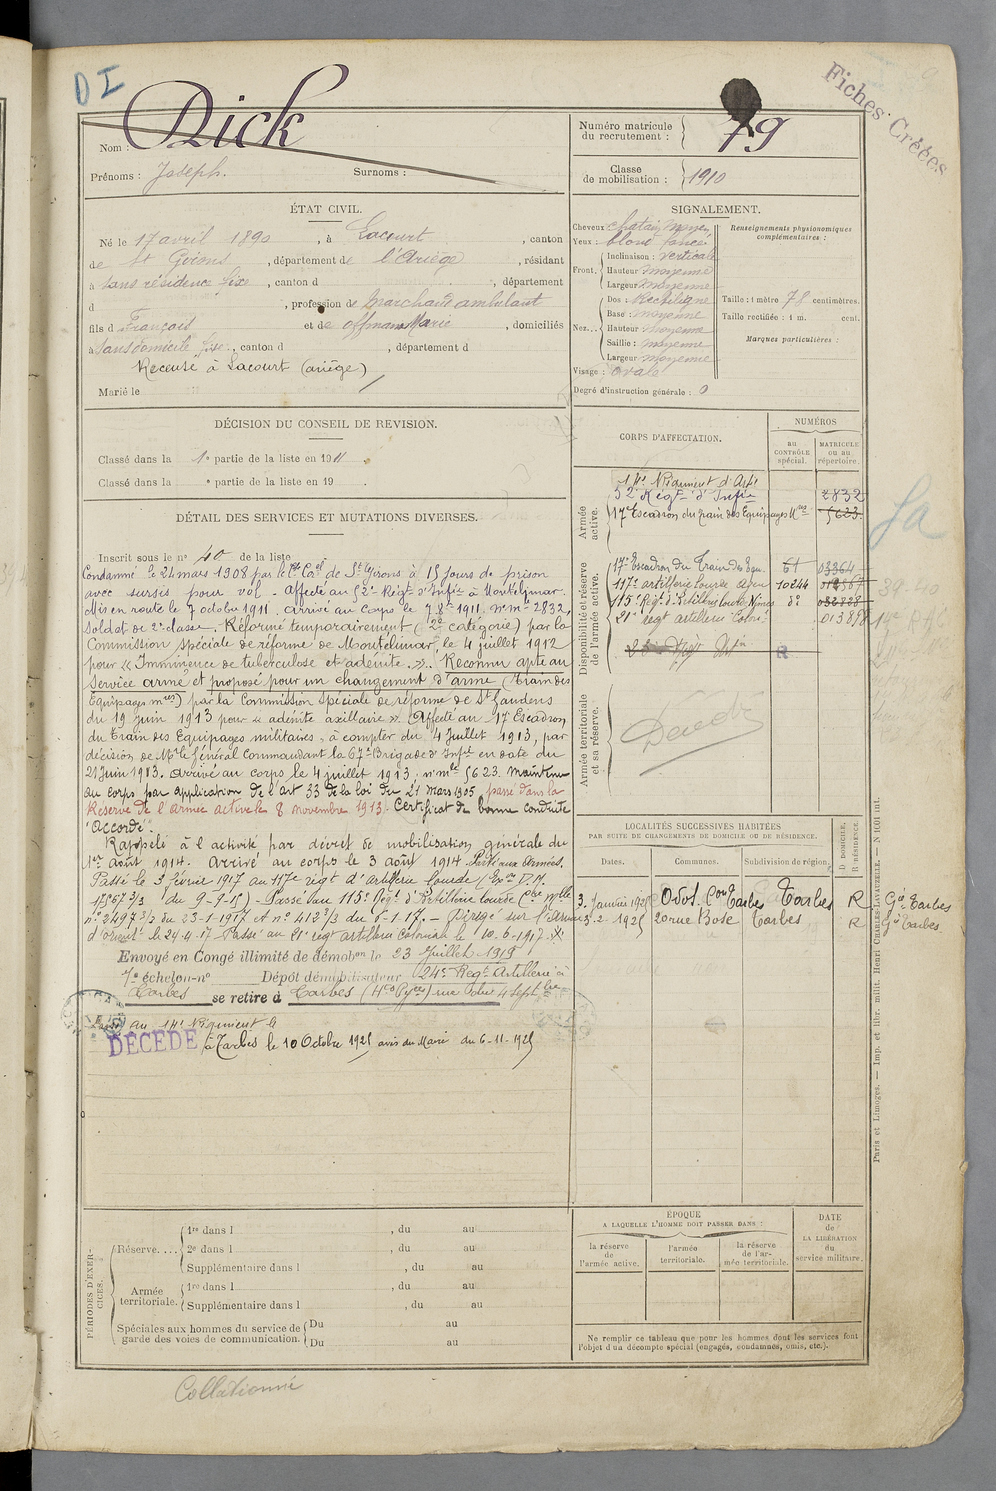 DI
Fiches Créées
Nom : Dick
Prénoms : Joseph. Surnoms :
Numéro matricule du recrutement : 79
Classe de mobilisation : 1910
ÉTAT CIVIL.
Né le 17 avril 1890, à Lacourt, canton
de St Girons, département de l'Ariège, résidant
à sans résidence fixe, canton d , département
d , profession de Marchand ambulant
fils d François et de Offman Marie, domiciliés
à sans domicile fixe, canton d , département d
Recensé à Lacourt (Ariège)
Marié le
SIGNALEMENT.
Cheveux chatain moyen
Yeux : bleu foncé
Front. Inclinaison : verticale
Hauteur moyenne
Largeur moyenne
Nez... Dos : Rectiligne
Base : moyenne
Hauteur : moyenne
Saillie : moyenne
Largeur moyenne
Visage : ovale
Degré d'instruction générale : 0
Renseignements physionomiques complémentaires :
Taille : 1 mètre 75 centimètres.
Taille rectifiée : 1 m. cent.
Marques particulières :
DÉCISION DU CONSEIL DE REVISION.
Classé dans la 1e partie de la liste en 1911.
Classé dans la e partie de la liste en 19 .
DÉTAIL DES SERVICES ET MUTATIONS DIVERSES.
Inscrit sous le no 40 de la liste
Condamné le 24 mars 1908 par le St Girons à 15 jours de prison
avec sursis pour vol. Affecté au 52e Régt d'Infie à Montélimar.
Mis en route le 7 octobre 1911. Arrivé au corps le 7 8bre 1911. No Mle 2832,
soldat de 2e classe. Réformé temporairement (2e catégorie) par la
Commission spéciale de réforme de Montélimar, le 4 juillet 1912
pour « Imminence de tuberculose et adénite. ». Reconnu apte au
service armé et proposé pour un changement d'arme (Train des
Equipages mres) par la Commission spéciale de réforme de St Gaudens
du 19 juin 1913 pour « adénite axillaire ». Affecté au 17e Escadron
du Train des Equipages militaires, à compter du 4 Juillet 1913, par
décision de Mr le Général Commandant la 67e Brigade d'Infie en date du
21 Juin 1913. Arrivé au corps le 4 juillet 1913, no mle 5623. Maintenu
au corps par application de l'art 33 de la loi du 21 Mars 1905 passé dans la
Réserve de l'armée active le 8 novembre 1913. Certificat de bonne conduite
"Accordé".
Rappelé à l'activité par décret de mobilisation générale du
1er août 1914. Arrivé au corps le 3 août 1914. Parti aux Armées.
Passé le 3 février 1917 au 117e régt d'artillerie lourde (
17567 3/3 du 9-9-15) - Passé au 115e Régt d'Artillerie Lourde (
no 2497 3/3 du 23-1-1917 et no 412 3/3 du 6-1-17. - Dirigé sur l'Armée
d'Orient le 24-4-17 Passé au 21e régt artillerie Coloniale le 10-6-1917.
Envoyé en Congé illimité de démobon le 23 Juillet 1919
7e échelon-no Dépôt démobilisateur 24e Régt Artillerie à
Tarbes se retire à Tarbes (Htes Pyées) rue du 4 Septbre
au 14e Régiment le
DÉCÉDÉ à Tarbes le 10 Octobre 1925 avis du Maire du 6-11-1925
CORPS D'AFFECTATION.
NUMÉROS
AU CONTRÔLE spécial.
MATRICULE ou au répertoire.
Armée active.
14e Régiment d'Artie
52e Régt d'Infie 2832
17e Escadron du train des Equipages Mres 5623
Disponibilité et réserve de l'armée active.
17e Escadron du Train des Equ. 61 03364
117e artillerie lourde 10244
115e Régt d'Artillerie lourde Nîmes do
21e régt artillerie Colon.
Armée territoriale et sa réserve.
Décédé
LOCALITÉS SUCCESSIVES HABITÉES
PAR SUITE DE CHANGEMENTS DE DOMICILE OU DE RÉSIDENCE.
Dates. Communes. Subdivision de région. D. DOMICILE, R. RÉSIDENCE.
3. Janvier 1925 Odos. Cton Tarbes Tarbes R Gé Tarbes
3-2-1925 20 rue Bose Tarbes Tarbes R Gé Tarbes.
PÉRIODES D'EXERCICES.
Réserve.... 1re dans l , du au
2e dans l , du au
Supplémentaire dans l , du au
Armée territoriale. 1re dans l , du au
Supplémentaire dans l , du au
Spéciales aux hommes du service de garde des voies de communication. Du au
Du au
ÉPOQUE
A LAQUELLE L'HOMME DOIT PASSER DANS :
la réserve de l'armée active.
l'armée territoriale.
la réserve de l'armée territoriale.
DATE de LA LIBÉRATION du service militaire.
Ne remplir ce tableau que pour les hommes dont les services font
l'objet d'un décompte spécial (engagés, condamnés, omis, etc.).
Paris et Limoges. — Imp. et libr. milit. Henri CHARLES-LAVAUZELLE. — N 1001 int.
Collationné